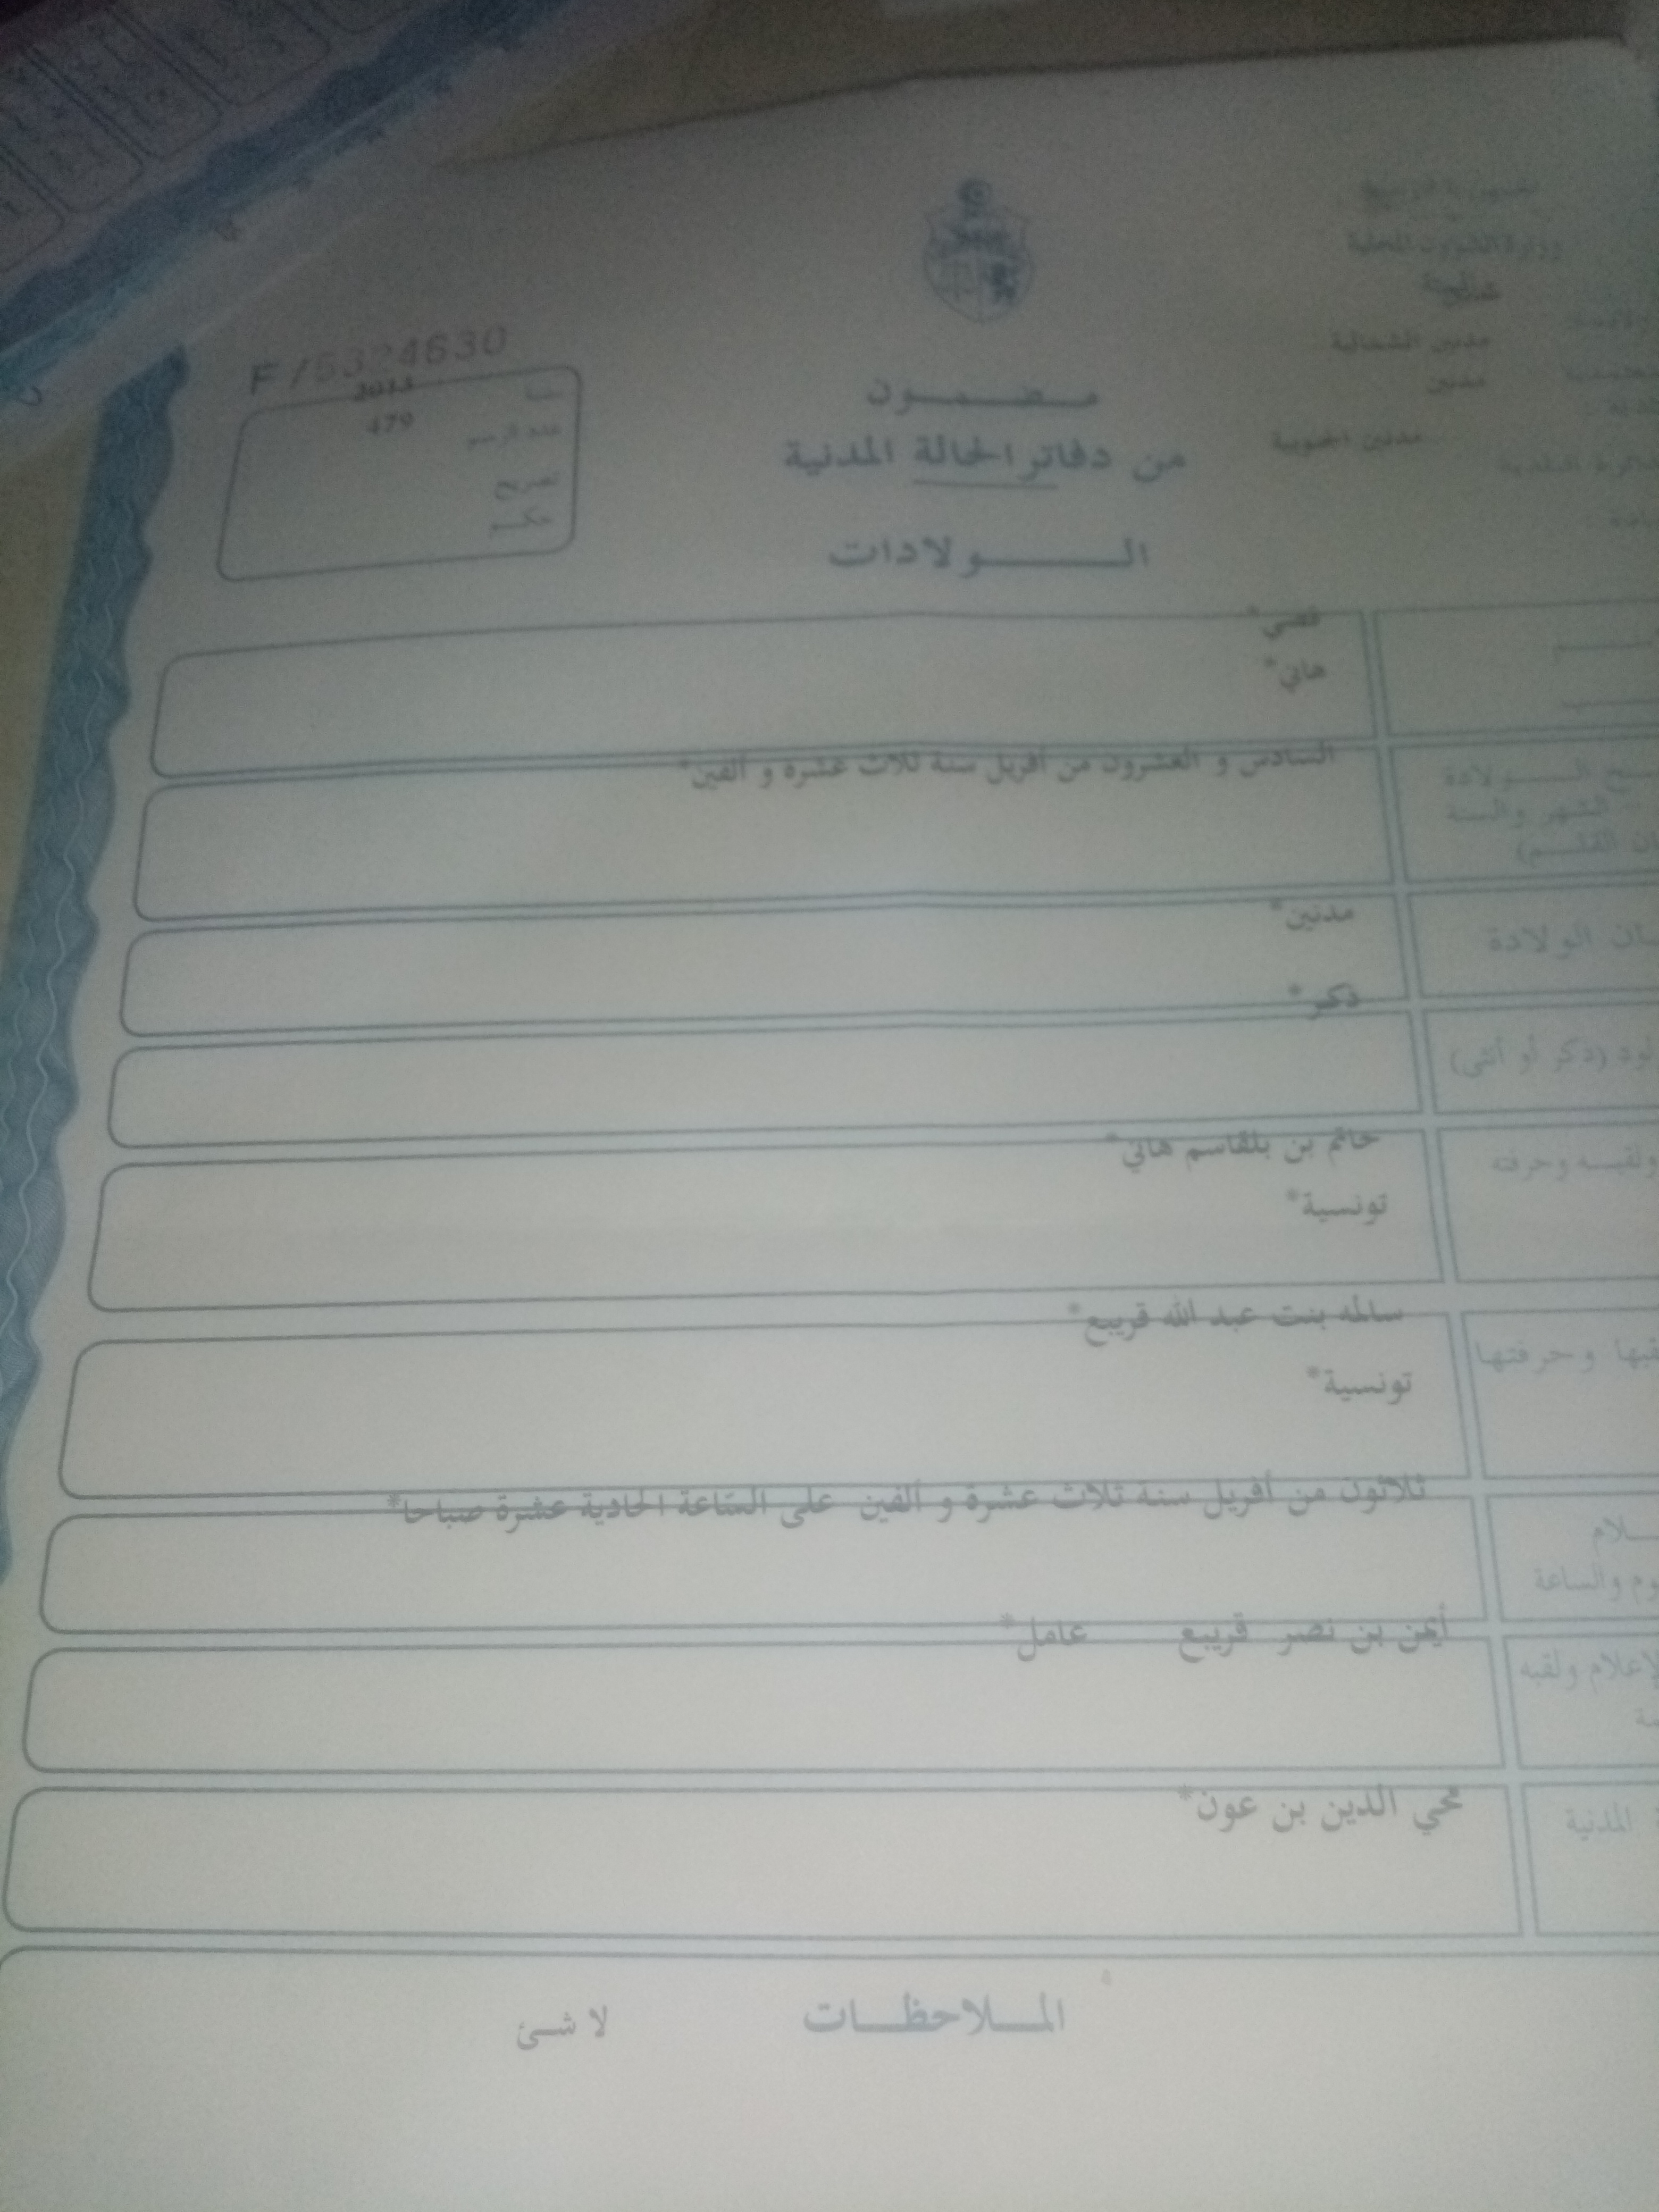 وزارة الشؤون المحلية
مدنين الشمالية
مدنين
مدنين الجنوبية
F
2013
479
عدد الرسم
تصريح
حكم
مضمون
من دفاتر الحالة المدنية
الولادات
قصي*
هاني*
الولادة
الشهر والسنة
السادس و العشرون من أفريل سنة ثلاث عشرة و ألفين*
الولادة
مدنين*
(ذكر أو أنثى)
ذكر*
ولقبه وحرفته
حاتم بن بلقاسم هاني*
تونسية*
وحرفتها
سالمه بنت عبد الله قريبع*
تونسية*
والساعة
ثلاثون من أفريل سنة ثلاث عشرة و ألفين على الساعة الحادية عشرة صباحا*
ولقبه
أيمن بن نصر قريبع عامل*
المدنية
محي الدين بن عون*
الملاحظات لا شئ